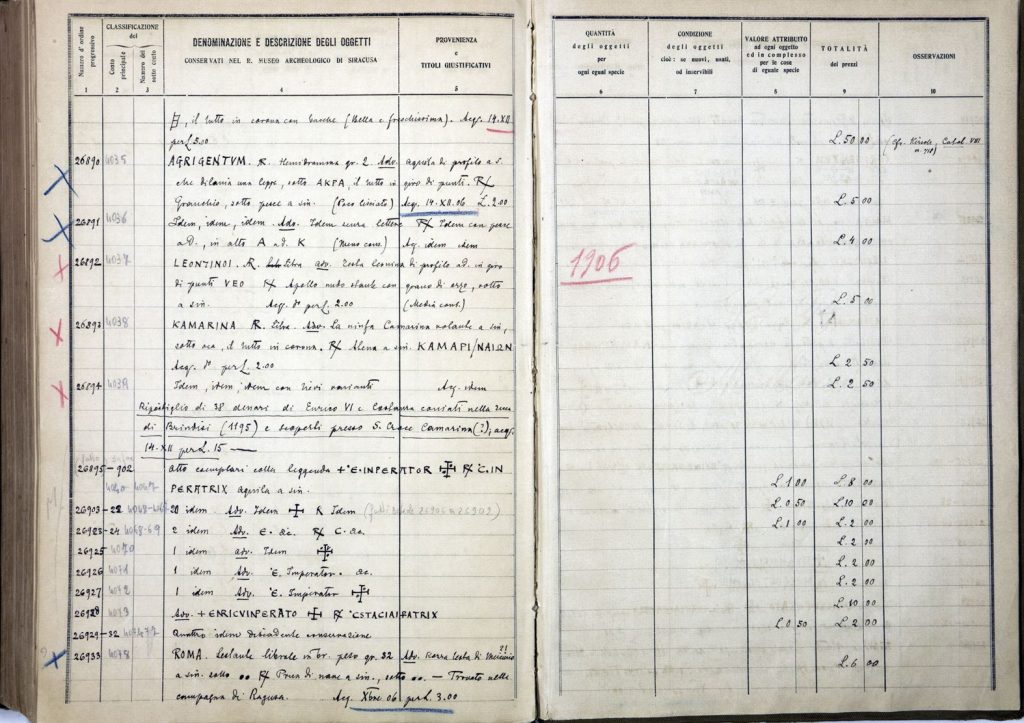 Numero d'ordine progressivo
CLASSIFICAZIONE del
Conto principale
Numero del sotto conto
DENOMINAZIONE E DESCRIZIONE DEGLI OGGETTI
CONSERVATI NEL R. MUSEO ARCHEOLOGICO DI SIRACUSA
PROVENIENZA
e
TITOLI GIUSTIFICATIVI
QUANTITÀ
degli oggetti
per
ogni egual specie
CONDIZIONE
degli oggetti
cioè: se nuovi, usati,
od inservibili
VALORE ATTRIBUITO
ad ogni oggetto
ed in complesso
per le cose
di eguale specie
TOTALITÀ
dei prezzi
OSSERVAZIONI
1 2 3 4 5 6 7 8 9 10
il tutto in corona con (Bella e freschissima). Acq. 14.XII
per L. 5.00 L. 50 00 (Cfr. Catal. VIII
26890 4035 AGRIGENTVM. AR. Hemidramma gr. 2. Adv. aquila di profilo a s.
che dilania una lepre, sotto AKPA, il tutto in giro di punti. R/
Granchio, sotto pesce a sin. Acq. 14.XII.06 L. 2.00 L. 5 00
26891 4036 Idem, idem, idem. Adv. Idem senza lettere R/ Idem con pesce
a d., in alto A a d. K (Meno cons.) Acq. idem idem L. 4 00
26892 4037 LEONTINOI. AR. Litra adv. Testa leonina di profilo a d. in giro
di punti VEO R/ Apollo nudo stante con grano di orzo, sotto
a sin. Acq. d° per L. 2.00 (Media cons.) L. 5 00
1906
26893 4038 KAMARINA AR. Litra. Adv. La ninfa Camarina volante a sin,
sotto oca, il tutto in corona. R/ Atena a sin. KAMAPI/NAIΩN
Acq. d° per L. 2.00 L. 2 50
26894 4039 Idem, idem, idem con lievi varianti Acq. idem L. 2 50
Ripostiglio di 38 denari di Enrico VI e Costanza coniati nella zecca
di Brindisi (1195) e scoperti presso S. Croce Camarina (?); acq.
14.XII per L. 15 —
26895 - 902 Otto esemplari colla leggenda + E·INPERATOR R/ C·IN
4040 4047 PERATRIX aquila a sin. L. 1 00 L. 8 00
26903 - 22 20 idem Adv. Idem R Idem L. 0 50 L. 10 00
26923 - 24 4068-69 2 idem Adv. E. &c. R/ C. &c. L. 1 00 L. 2 00
26925 4070 1 idem adv. Idem L. 2 00
26926 4071 1 idem Adv. E. Imperator. &c. L. 2 00
26927 4072 1 idem Adv. E. Imperator L. 2 00
26928 4073 Adv. + ENRICVINPERATO R/ L. 10 00
26929 - 32 Quattro idem di scadente conservazione L. 0 50 L. 2 00
26933 4078 ROMA. Sestante liberale in br. peso gr. 32 Adv. Rozza testa di Mercurio ?!
a sin. sotto oo R/ Prora di nave a sin., sotto oo. — Trovato nelle L. 6 00
campagna di Ragusa. Acq. Xbre 06 per L. 3.00